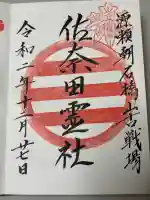 源頼朝石橋山古戦場
佐奈田霊社
令和二年十二月廿七日